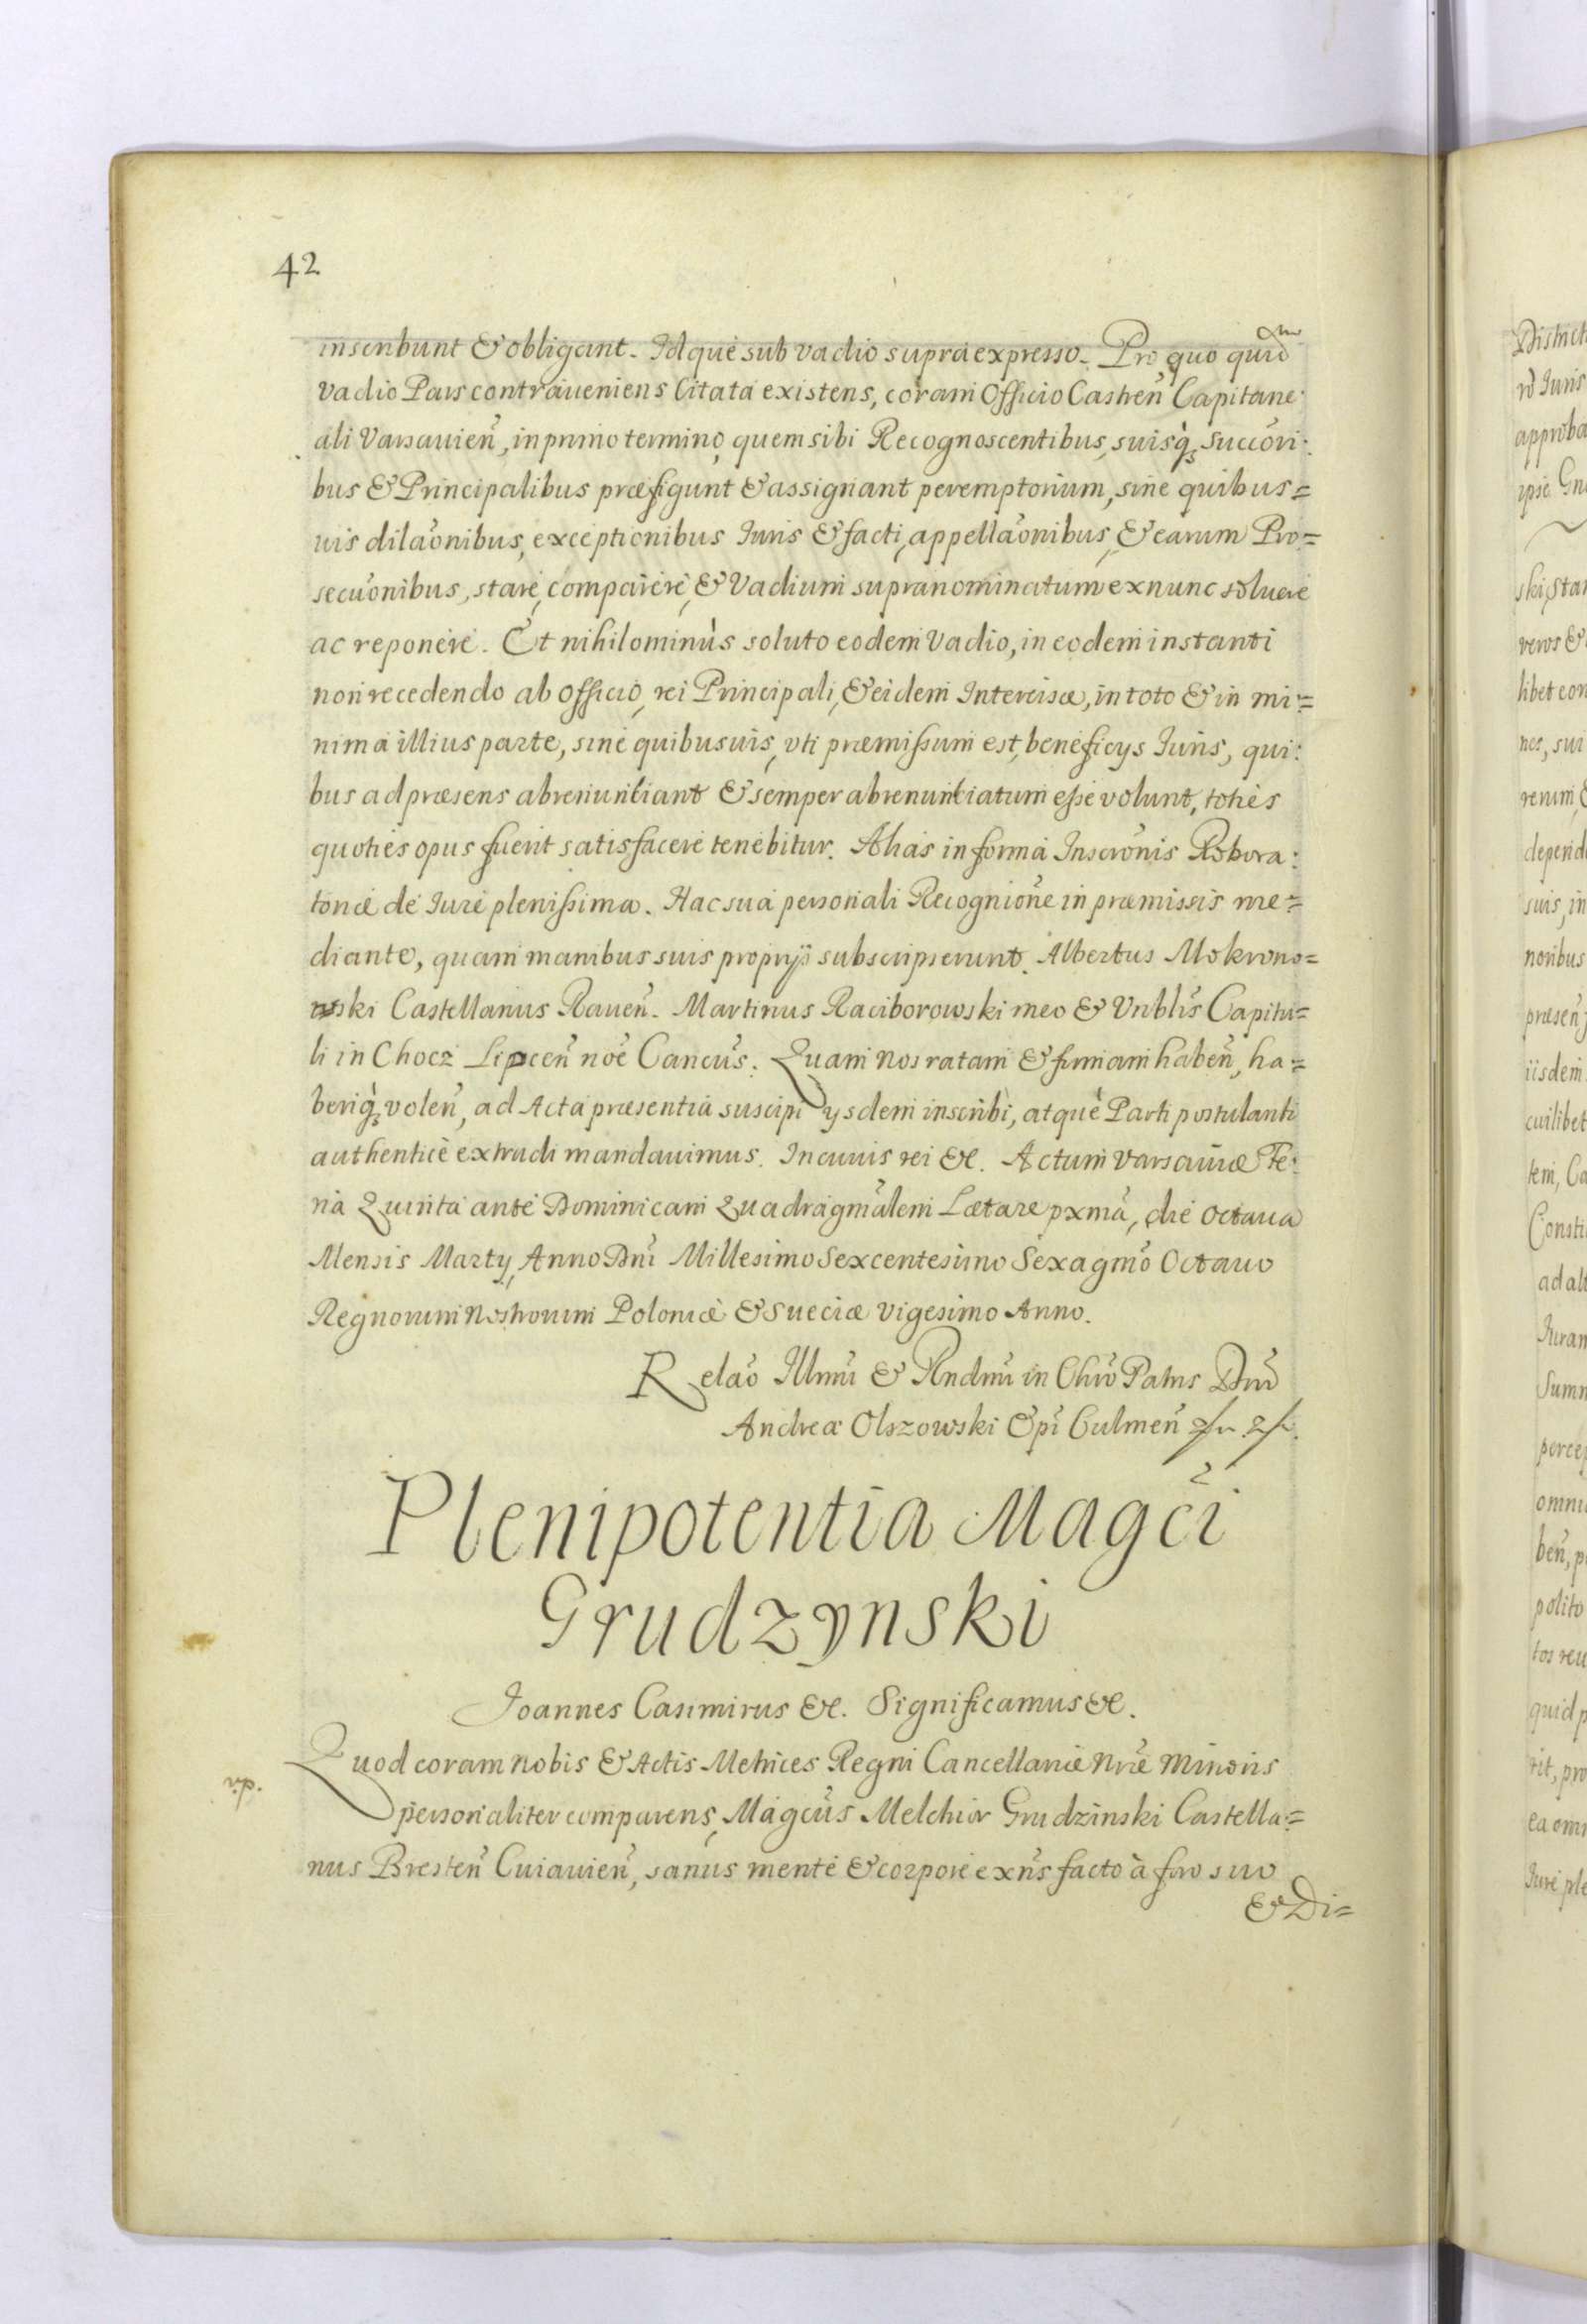 42
inscribunt & obligant. Idque sub vadio supra expresso. Pro quo quid̃m
vadio Pars contraueniens Citata existens, coram Officio Castreñ Capitane:
ali Varsauieñ, in primo termino, quem sibi Recognoscentibus, suisq̀ꝫ Succõri:
bus & Principalibus præfigunt & assignant peremptorium, sine quibus=
uis dilãonibus, exceptionibus Iuris & facti, appellãonibus, & earum Pro=
secũonibus, stare, comparere, & Vadium supranominatum ex nunc soluere
ac reponere. Et nihilominùs soluto eodem Vadio, in eodem instanti
non recedendo ab Officio, rei Principali, & eidem Intercisæ, in toto & in mi=
nima illius parte, sine quibusuis, vti præmissum est, beneficys Iuris, qui:
bus ad præsens abrenuntiant & semper abrenuntiatum esse volunt, toties
quoties opus fuerit satisfacere tenebitur. Alias in forma Inscrõnis Robora:
toriæ de Iure plenissima. Hac sua personali Recogniõne in præmissis me=
diante, quam manibus suis proprÿs subscripserunt. Albertus Mokrono=
wski Castellanus Raueñ. Martinus Raciborowski meo & Vnblis̃ Capitu=
li in Chocz Lipceñ nõe Cancũs. Quam nos ratam & firmam habeñ, ha=
beriq̀ꝫ voleñ, ad Acta præsentia suscipi ysdem inscribi, atquè Parti postulanti
authenticè extradi mandauimus. In cuius rei &c. Actum Varsauiæ Fe:
ria Quinta ante Dominicam Quadragm̃alem Lætare pxmã, die Octaua
Mensis Marty, Anno Dñi Millesimo Sexcentesimo Sexagmõ Octauo
Regnorum nostrorum Poloniæ & Sueciæ vigesimo Anno.
Relaõ Illmĩ & Rndmĩ in Chrõ Patris Dnĩ
Andreæ Olszowski Epĩ Culmeñ
Plenipotentia Magc̃i
Grudzynski
Joannes Casimirus &c. Significamus &c.
Quod coram nobis & Actis Metrices Regni Cancellariæ nræ̃ Minoris
personaliter comparens, Magcũs Melchior Grudzinski Castella:=
nus Bresteñ Cuiauieñ, sanus mente & corpore exñs facto à foro suo
& Di=